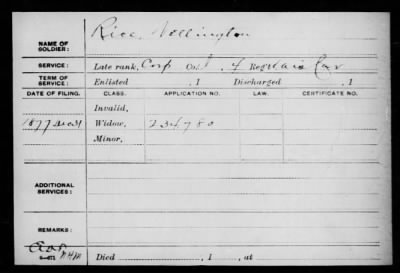 NAME OF SOLDIER: Rice, Wellington
SERVICE: Late rank, Corp Co. I, 4 Reg't Cav
TERM OF SERVICE: Enlisted , 1 Discharged , 1
DATE OF FILING. CLASS. APPLICATION NO. LAW. CERTIFICATE NO.
Invalid,
1877 Dec 31 Widow, 234780
Minor,
ADDITIONAL SERVICES:
REMARKS:
6-671 Died , 1 , at